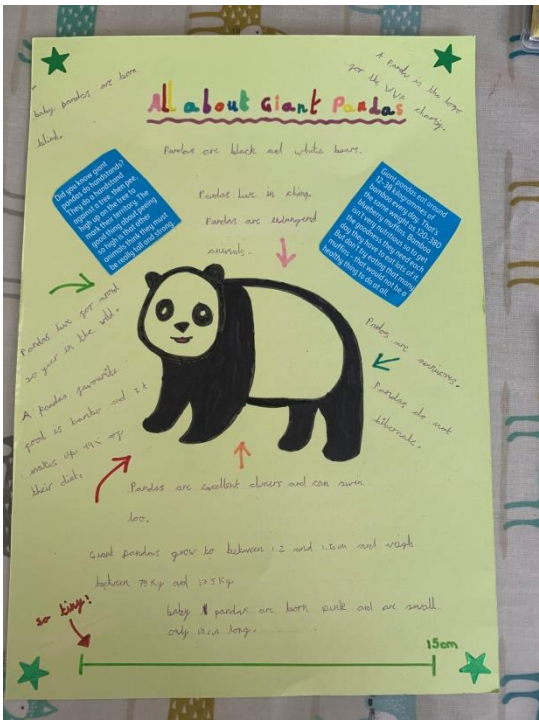 baby pandas are born
blind.
A Panda is the logo
for the WWF charity.
All about Giant Pandas
Pandas are black and white bears.
Did you know giant
pandas do handstands?
They do a handstand
against a tree, then pee
high up on the tree to
mark their territory. The
good thing about peeing
so high is that other
animals think they must
be really tall and strong
Pandas live in china.
Pandas are endangered
animals.
Giant pandas eat around
12-38 kilogrammes of
bamboo every day. That's
the same weight as 120-380
blueberry muffins. Bamboo
isn't very nutritious so to get
the goodness they need each
day they have to eat lots of it.
But don't try eating that many
muffins - that would not be a
healthy thing to do at all.
Pandas live for around
20 years in the wild.
A pandas favourite
food is bamboo and it
makes up of
their diet.
Pandas are
Pandas do not
Pandas are excellent and can swim
too.
Giant pandas grow to between 1.2 and and weigh
between 75Kg and
baby pandas are born pink and are small
only 15cm long.
so tiny!
15cm